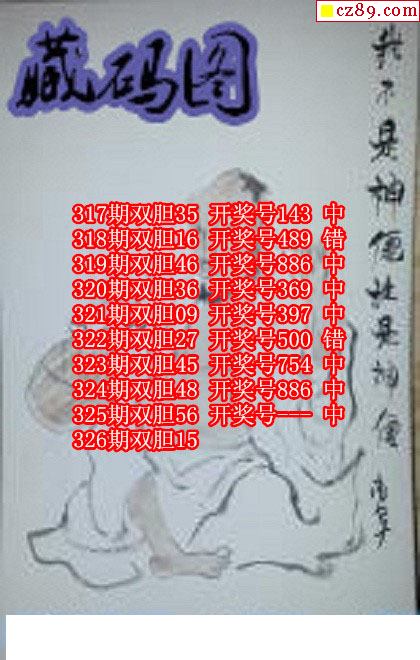 cz89.com
藏码图
317期双胆35 开奖号143 中
318期双胆16 开奖号489 错
319期双胆46 开奖号886 中
320期双胆36 开奖号369 中
321期双胆09 开奖号397 中
322期双胆27 开奖号500 错
323期双胆45 开奖号754 中
324期双胆48 开奖号886 中
325期双胆56 开奖号--- 中
326期双胆15
我不是神僊谁是神僊